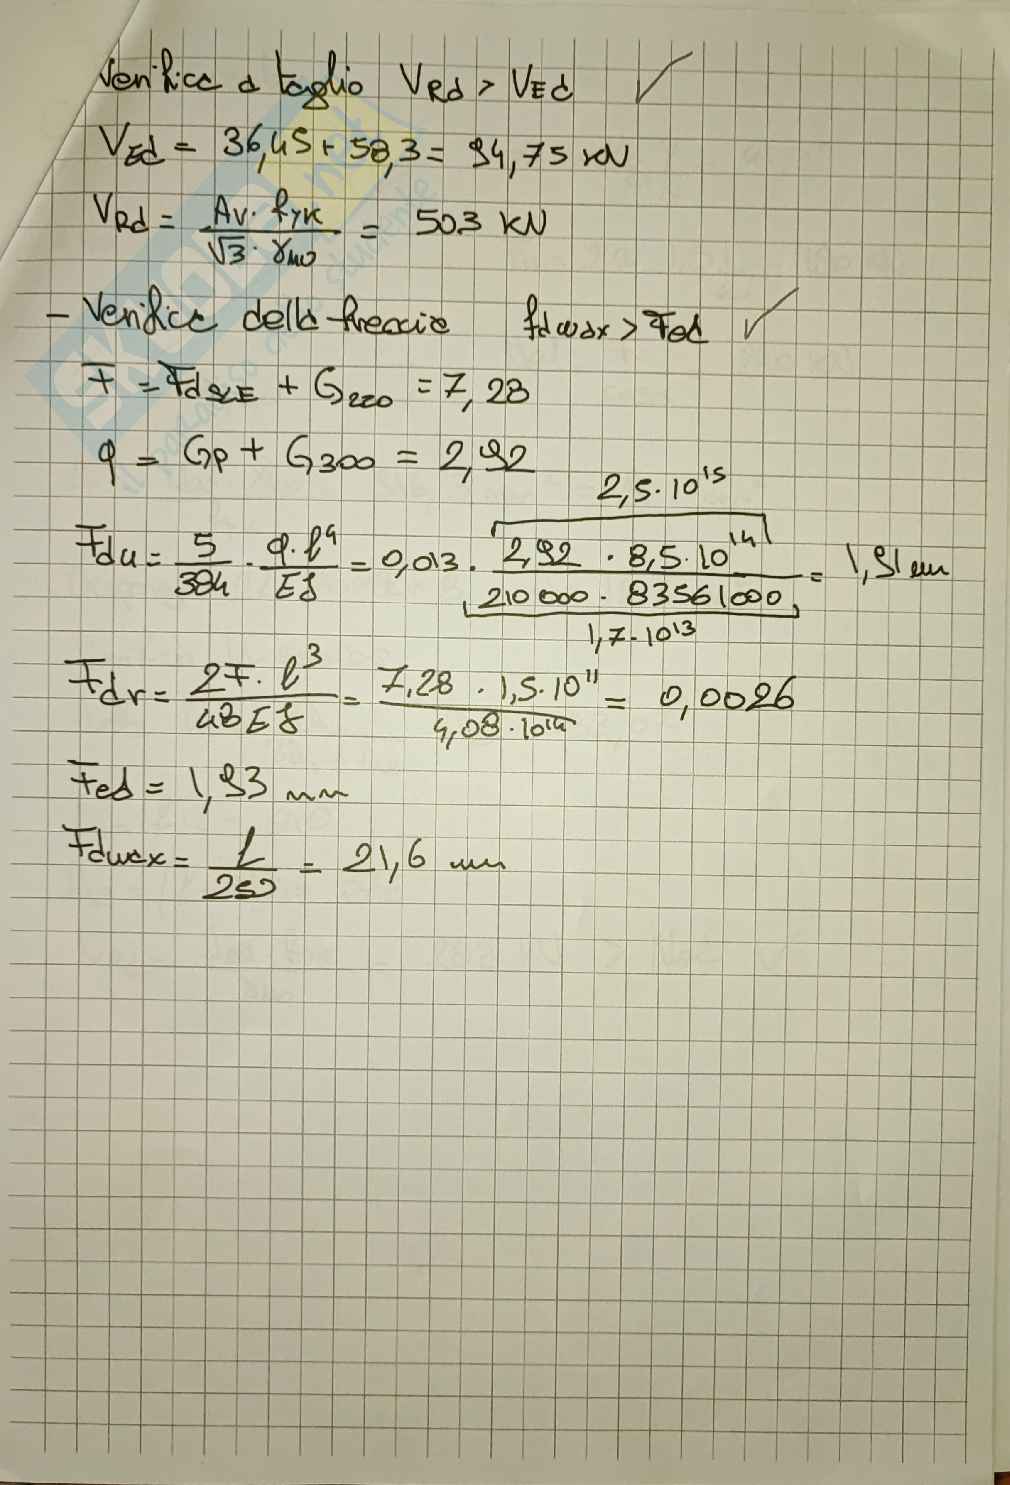 Verifica a taglio VRd > VEd ✓
VEd = 36,45 + 58,3 = 94,75 kN
VRd = Av · fyk / √3 · γM0 = 503 kN
- Verifica della freccia fdmax > Fed ✓
F = FdSLE + G220 = 7,28
q = Gp + G300 = 2,92
2,5 · 10^15
Fdu = 5/384 · q · l^4 / EJ = 0,013 · 2,92 · 8,5 · 10^14 / 210000 · 83561000 = 1,91 mm
1,7 · 10^13
Fdr = 2F · l^3 / 48EJ = 7,28 · 1,5 · 10^11 / 4,08 · 10^14 = 0,0026
Fed = 1,93 mm
Fdmax = L / 250 = 21,6 mm